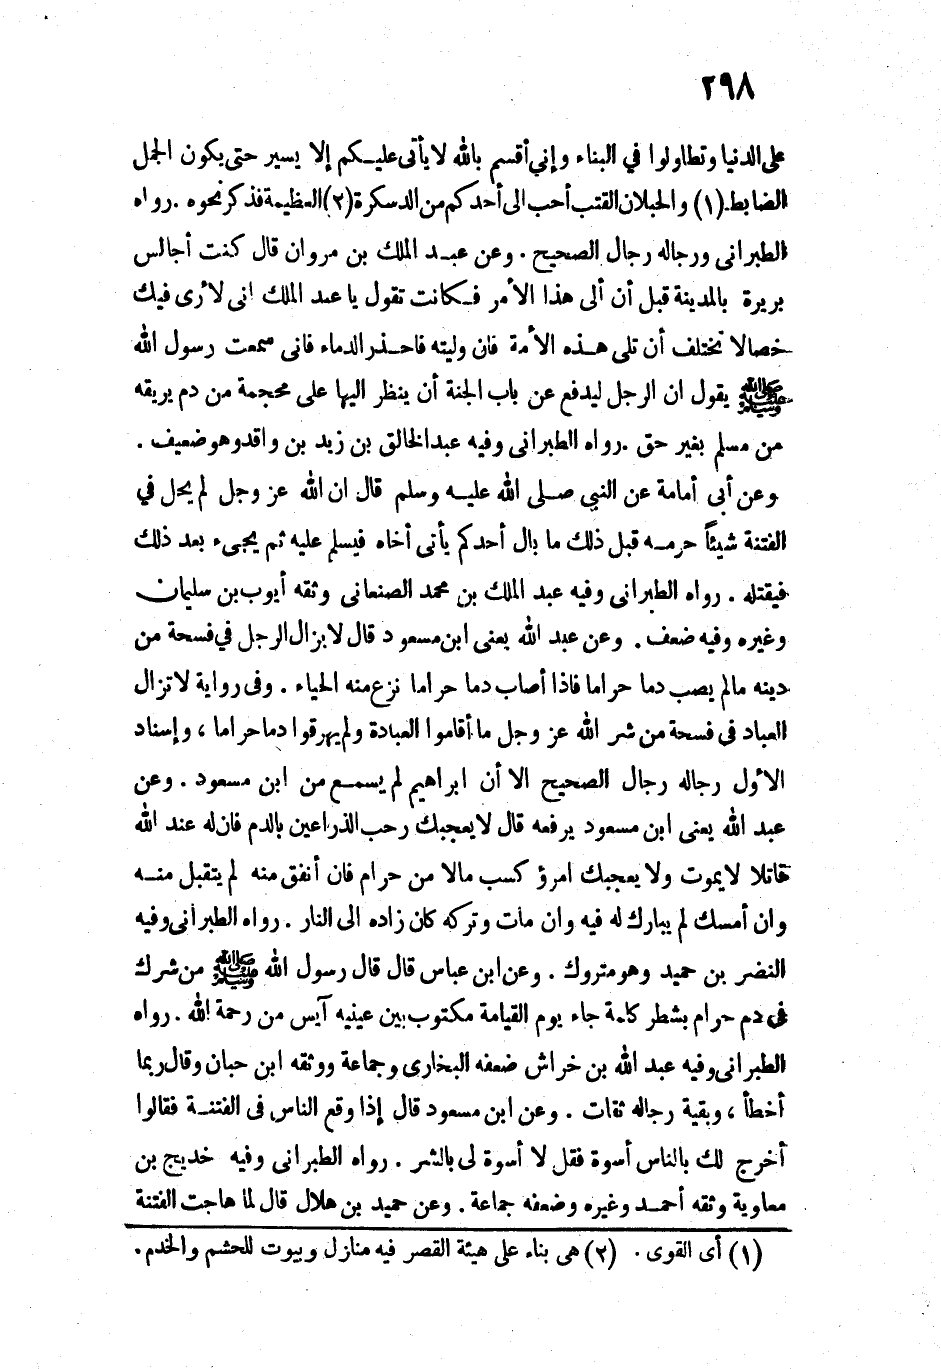 ٢٩٨
على الدنيا وتطاولوا في البناء وإني أقسم بالله لا يأتى عليكم إلا يسير حتى يكون الجمل
الضابط (١) والحبلان القتب أحب الى أحدكم من الدسكرة (٢) العظيمة فذكر نحوه . رواه
الطبرانى ورجاله رجال الصحيح . وعن عبد الملك بن مروان قال كنت أجالس
بريرة بالمدينة قبل أن ألى هذا الأمر فكانت تقول يا عبد الملك انى لأرى فيك
خصالا تختلف أن تلى هذه الأمة فان وليته فاحذر الدماء فانى سمعت رسول الله
ﷺ يقول ان الرجل ليدفع عن باب الجنة أن ينظر اليها على محجمة من دم يريقه
من مسلم بغير حق . رواه الطبرانى وفيه عبدالخالق بن زيد بن واقد وهو ضعيف .
وعن أبى أمامة عن النبي صلى الله عليه وسلم قال ان الله عز وجل لم يحل في
الفتنة شيئاً حرمه قبل ذلك ما بال أحدكم يأتى أخاه فيسلم عليه ثم يجيء بعد ذلك
فيقتله . رواه الطبرانى وفيه عبد الملك بن محمد الصنعانى وثقه أيوب بن سليمان
وغيره وفيه ضعف . وعن عبد الله يعنى ابن مسعود قال لا يزال الرجل في فسحة من
دينه مالم يصب دما حراما فاذا أصاب دما حراما نزع منه الحياء . وفى رواية لا تزال
العباد فى فسحة من شر الله عز وجل ما أقاموا العبادة ولم يهرقوا دما حراما ، وإسناد
الأول رجاله رجال الصحيح الا أن ابراهيم لم يسمع من ابن مسعود . وعن
عبد الله يعنى ابن مسعود يرفعه قال لا يعجبك رحب الذراعين بالدم فان له عند الله
قاتلا لا يموت ولا يعجبك امرؤ كسب مالا من حرام فان أنفق منه لم يتقبل منه
وان أمسك لم يبارك له فيه وان مات وتركه كان زاده الى النار . رواه الطبرانى وفيه
النضر بن حميد وهو متروك . وعن ابن عباس قال قال رسول الله ﷺ من شرك
فى دم حرام بشطر كلمة جاء يوم القيامة مكتوب بين عينيه آيس من رحمة الله . رواه
الطبرانى وفيه عبد الله بن خراش ضعفه البخارى وجماعة ووثقه ابن حبان وقال ربما
أخطأ ، وبقية رجاله ثقات . وعن ابن مسعود قال إذا وقع الناس فى الفتنة فقالوا
أخرج لك بالناس أسوة فقل لا أسوة لى بالشر . رواه الطبرانى وفيه خديج بن
معاوية وثقه أحمد وغيره وضعفه جماعة . وعن حميد بن هلال قال لما هاجت الفتنة
(١) أى القوى . (٢) هى بناء على هيئة القصر فيه منازل وبيوت للحشم والخدم .